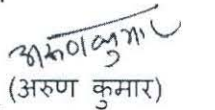 अरुण कुमार
(अरुण कुमार)